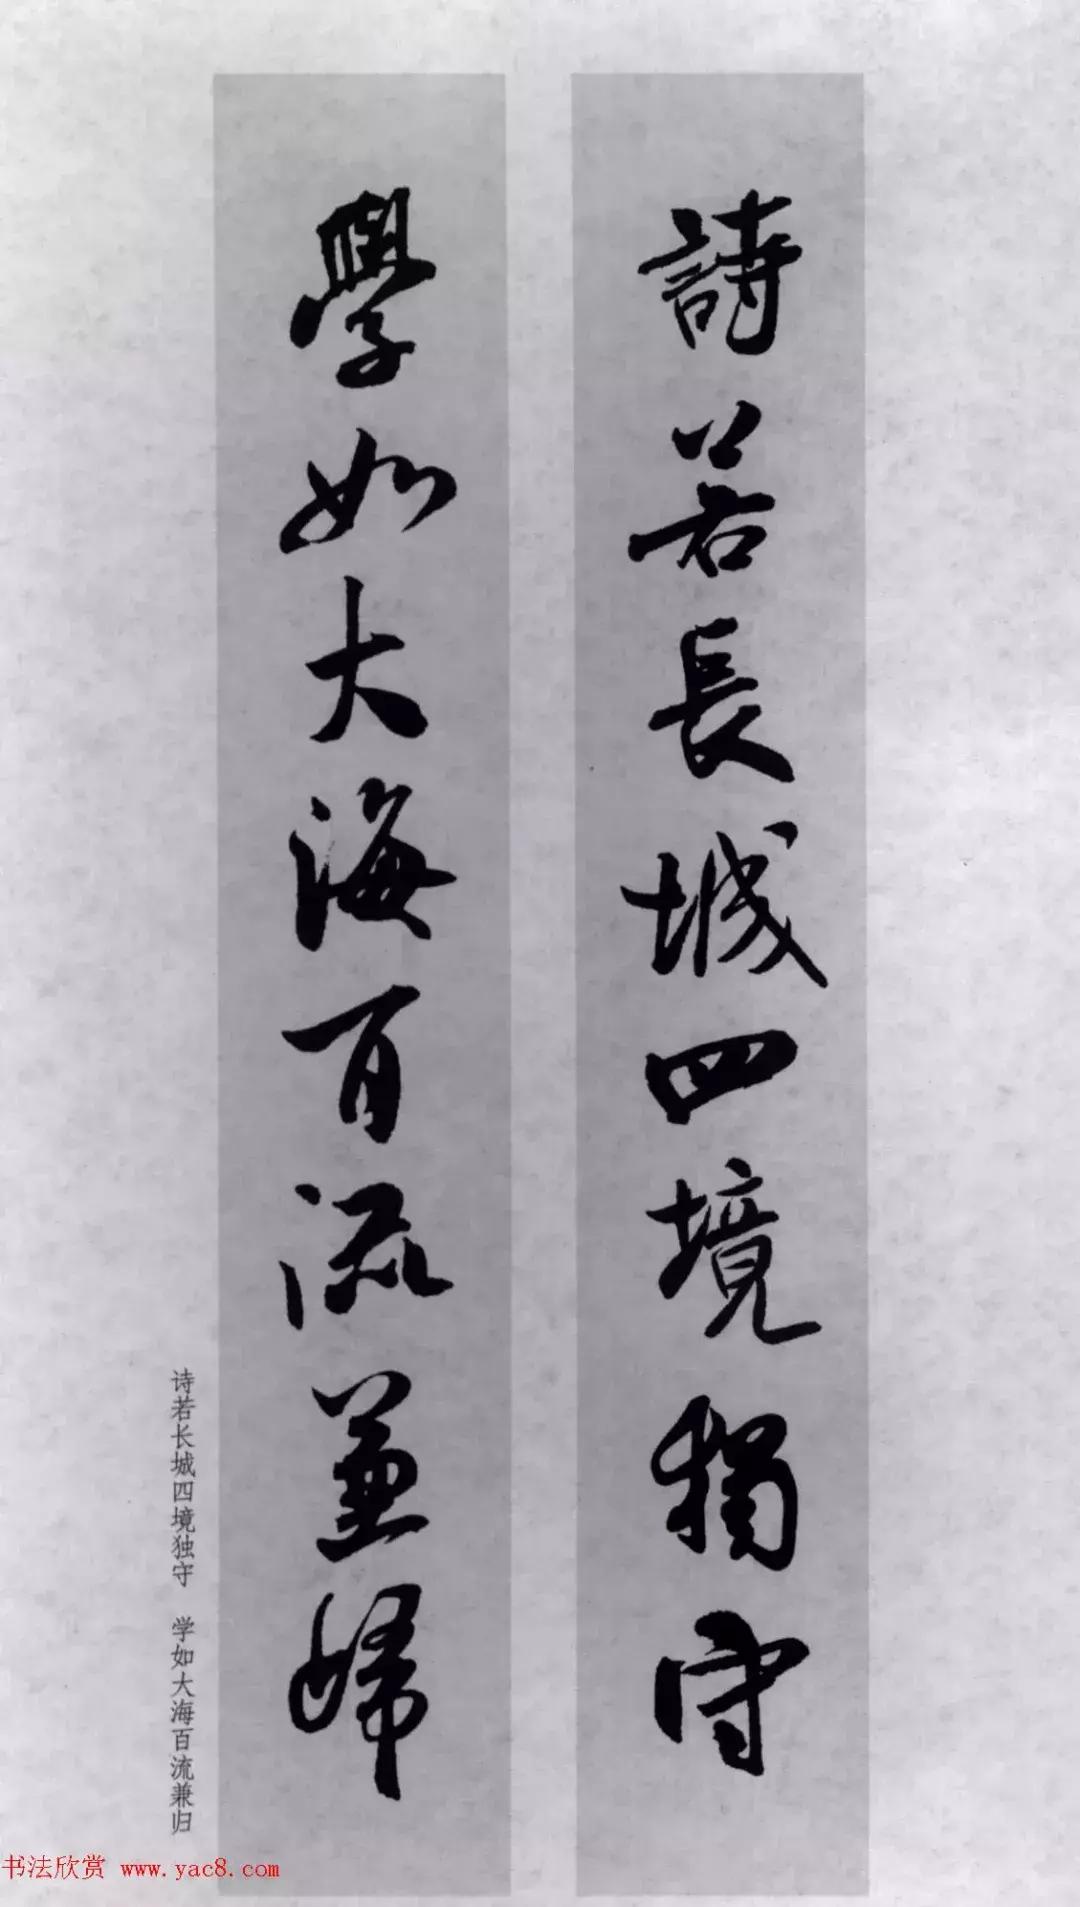 詩若長城四境獨守
學如大海百流兼歸
诗若长城四境独守 学如大海百流兼归
书法欣赏 www.yac8.com